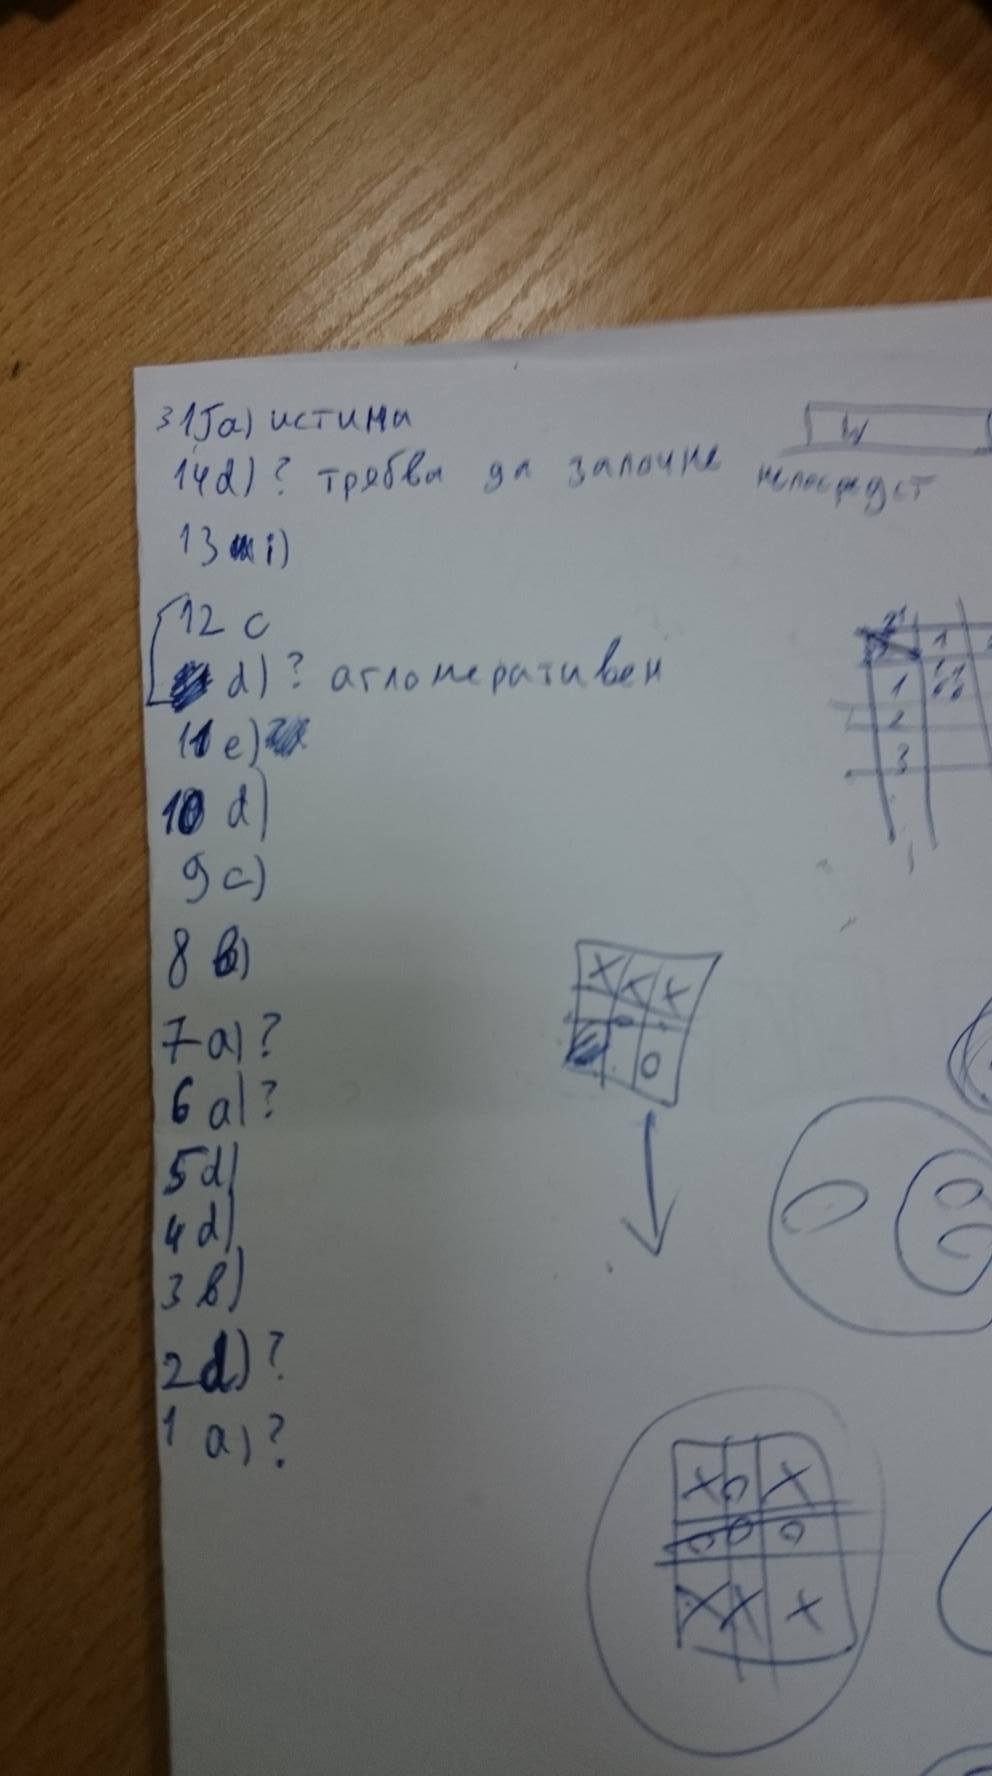 15a) истина
14d) ? трябва да започне непосредст
W
13 i)
12 c
d) ? агломеративен
11 e)
10 d)
9 c)
8 b)
7 a) ?
6 a) ?
5 d)
4 d)
3 b)
2 d) ?
1 a) ?
1
1
2
3
X X X
O
X O X
O O O
X X X